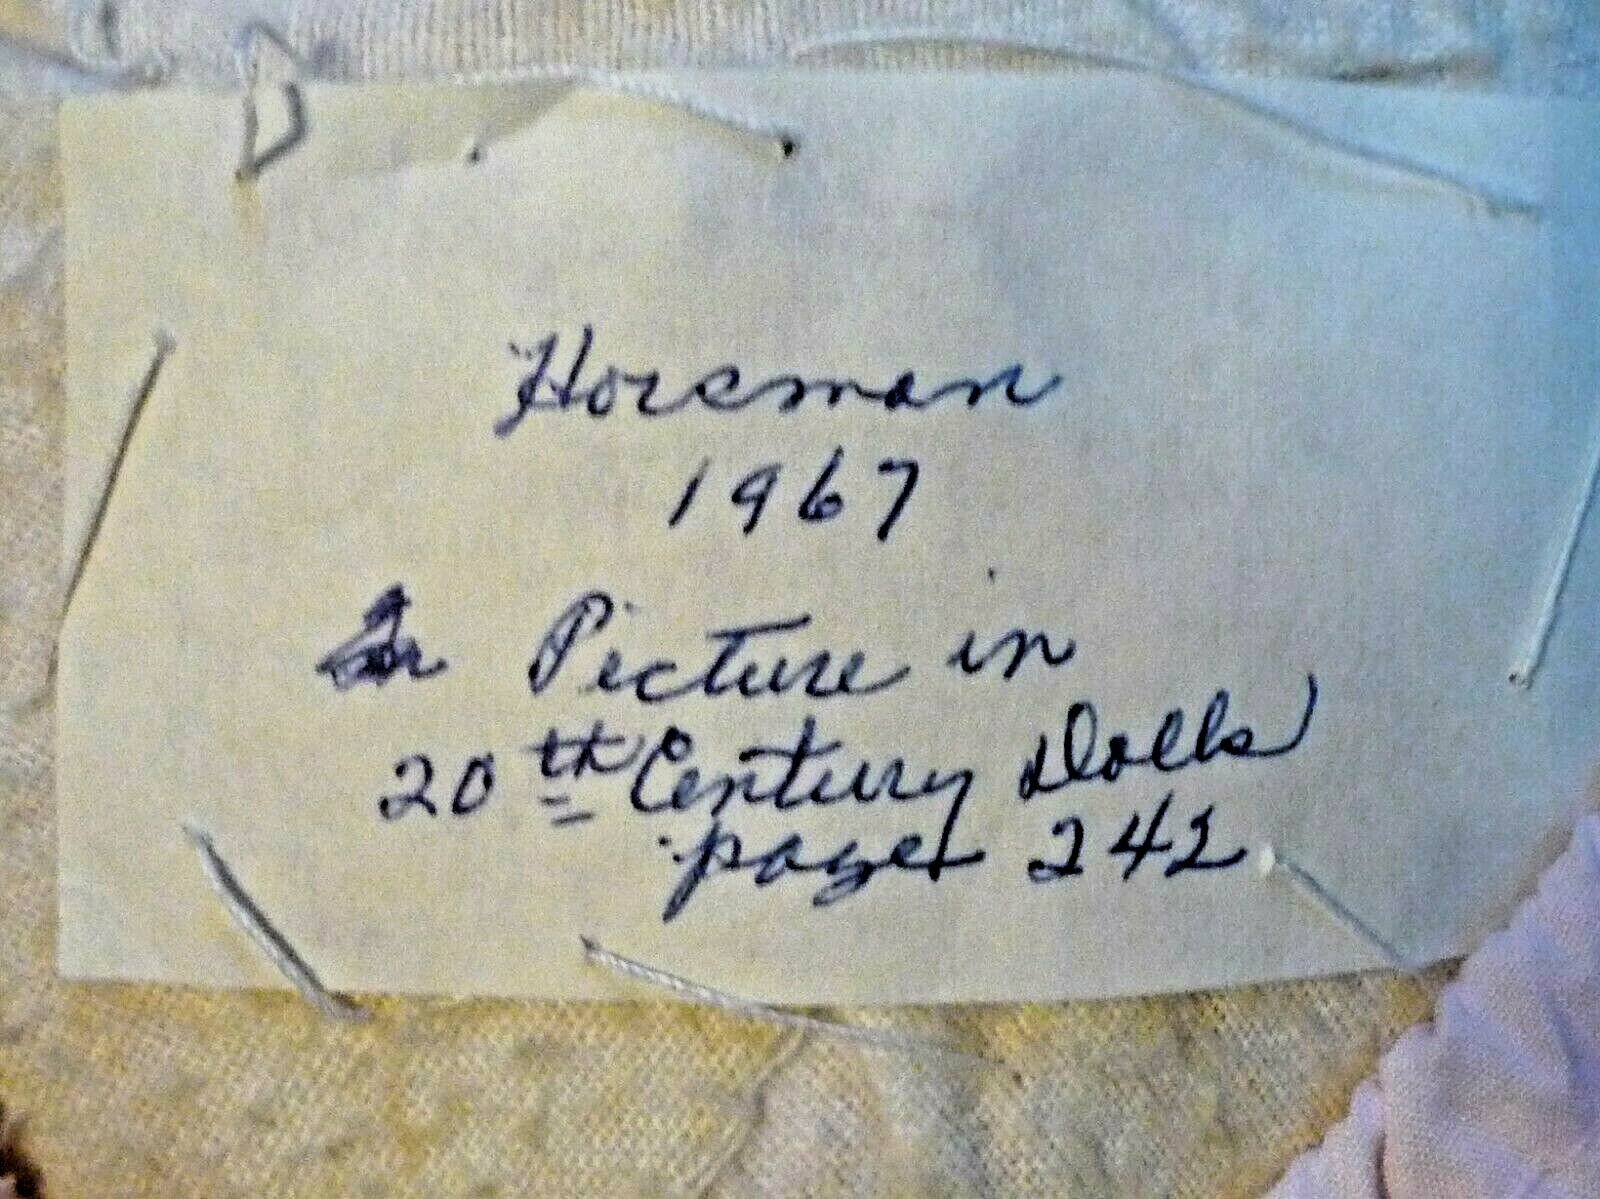 Horsman
1967
Picture in
20th Century Dolls
page 242